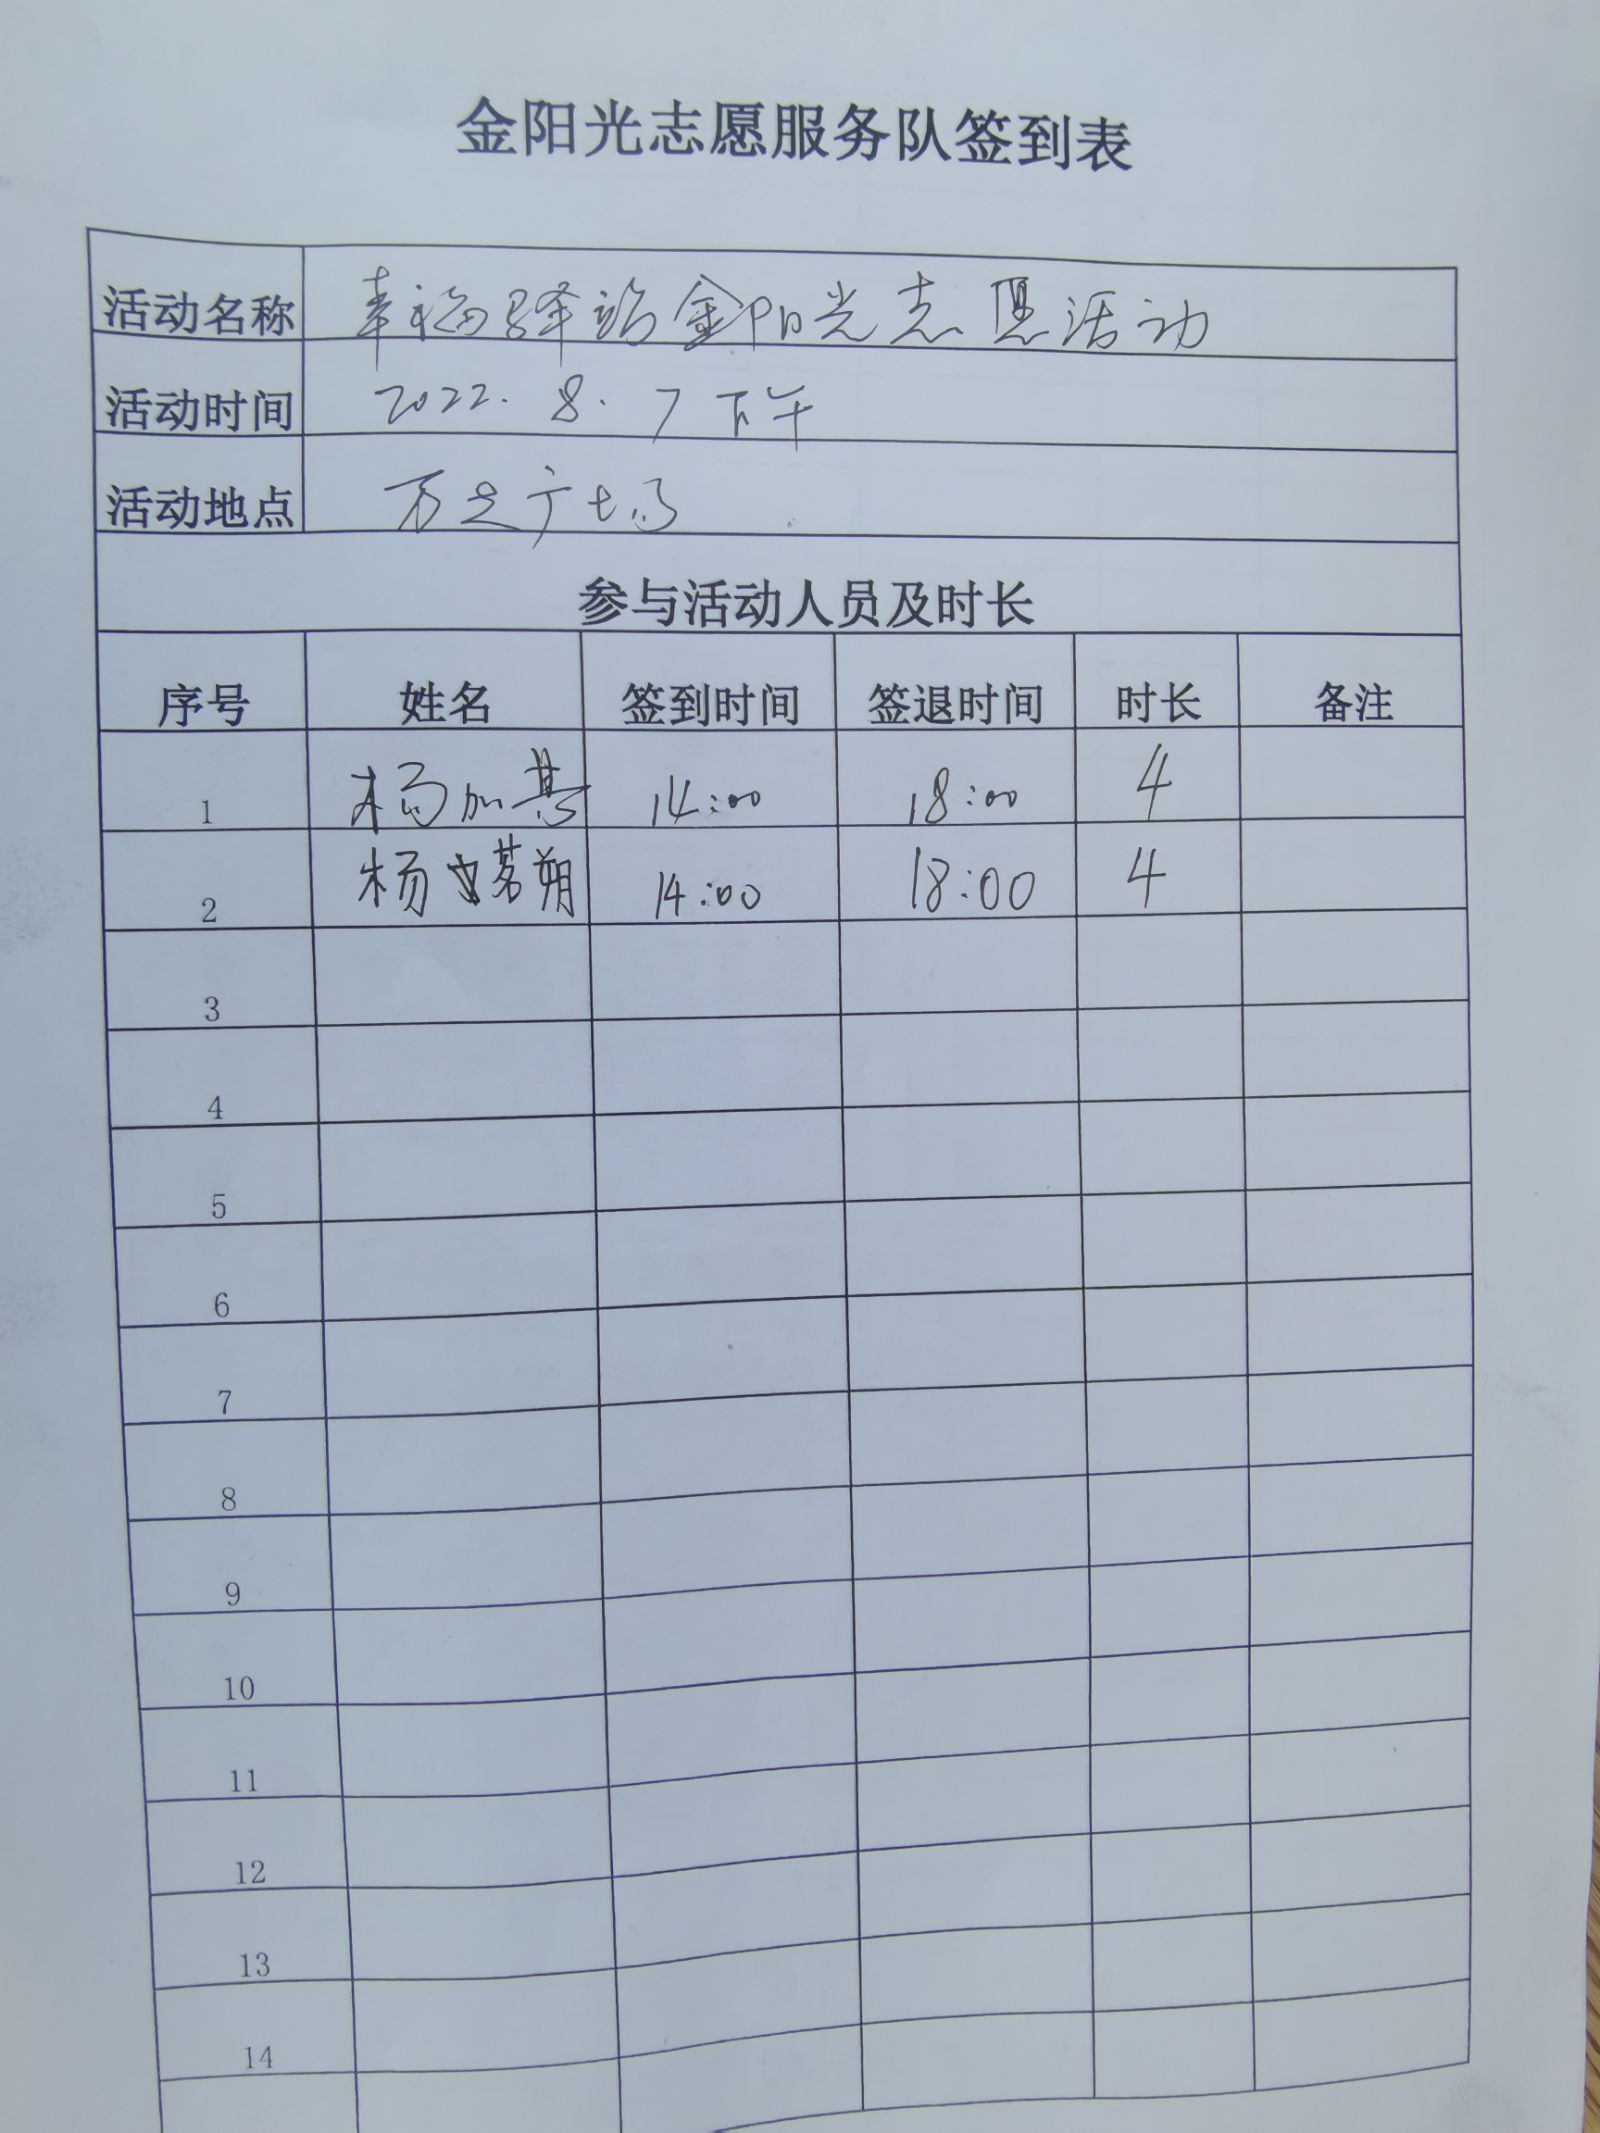 金阳光志愿服务队签到表
活动名称 幸福驿站金阳光志愿活动
活动时间 2022.8.7下午
活动地点 万达广场
参与活动人员及时长
序号 姓名 签到时间 签退时间 时长 备注
1 杨加基 14:00 18:00 4
2 杨茗朔 14:00 18:00 4
3
4
5
6
7
8
9
10
11
12
13
14